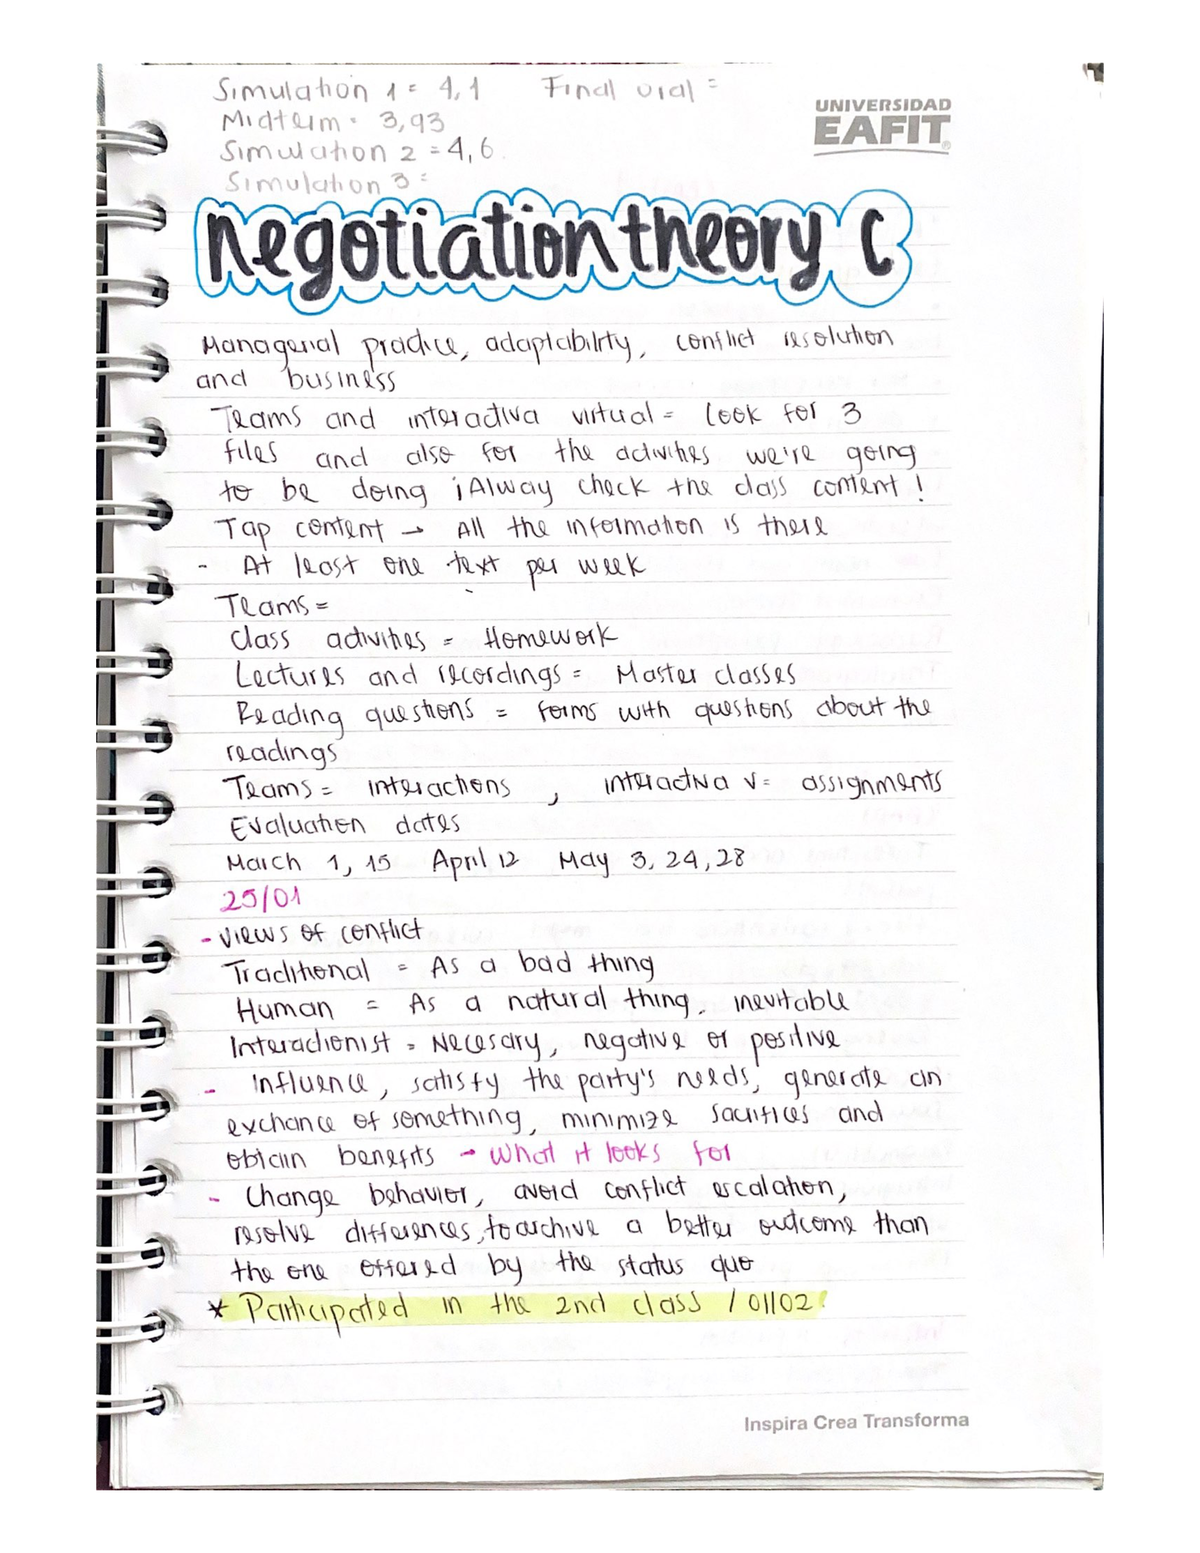 Simulation 1 = 4,1 Final oral =
Midterm = 3,93
Simulation 2 = 4,6
Simulation 3 =
UNIVERSIDAD
EAFIT
negotiation theory C
Managerial practice, adaptability, conflict resolution
and business
Teams and interactiva virtual = Look for 3
files and also for the activities we're going
to be doing ¡Alway check the class content!
Tap content → All the information is there
- At least one text per week
Teams =
Class activities = Homework
Lectures and recordings = Master classes
Reading questions = forms with questions about the
readings
Teams = interactions , interactiva v = assignments
Evaluation dates
March 1, 15 April 12 May 3, 24, 28
25/01
- Views of conflict
Traditional = As a bad thing
Human = As a natural thing, inevitable
Interactionist = Necesary, negative or positive
- Influence, satisfy the party's needs, generate an
exchance of something, minimize sacrifices and
obtain benefits → What it looks for
- Change behavior, avoid conflict escalation,
resolve differences, to archive a better outcome than
the one offered by the status quo
* Participated in the 2nd class / 01/02
Inspira Crea Transforma